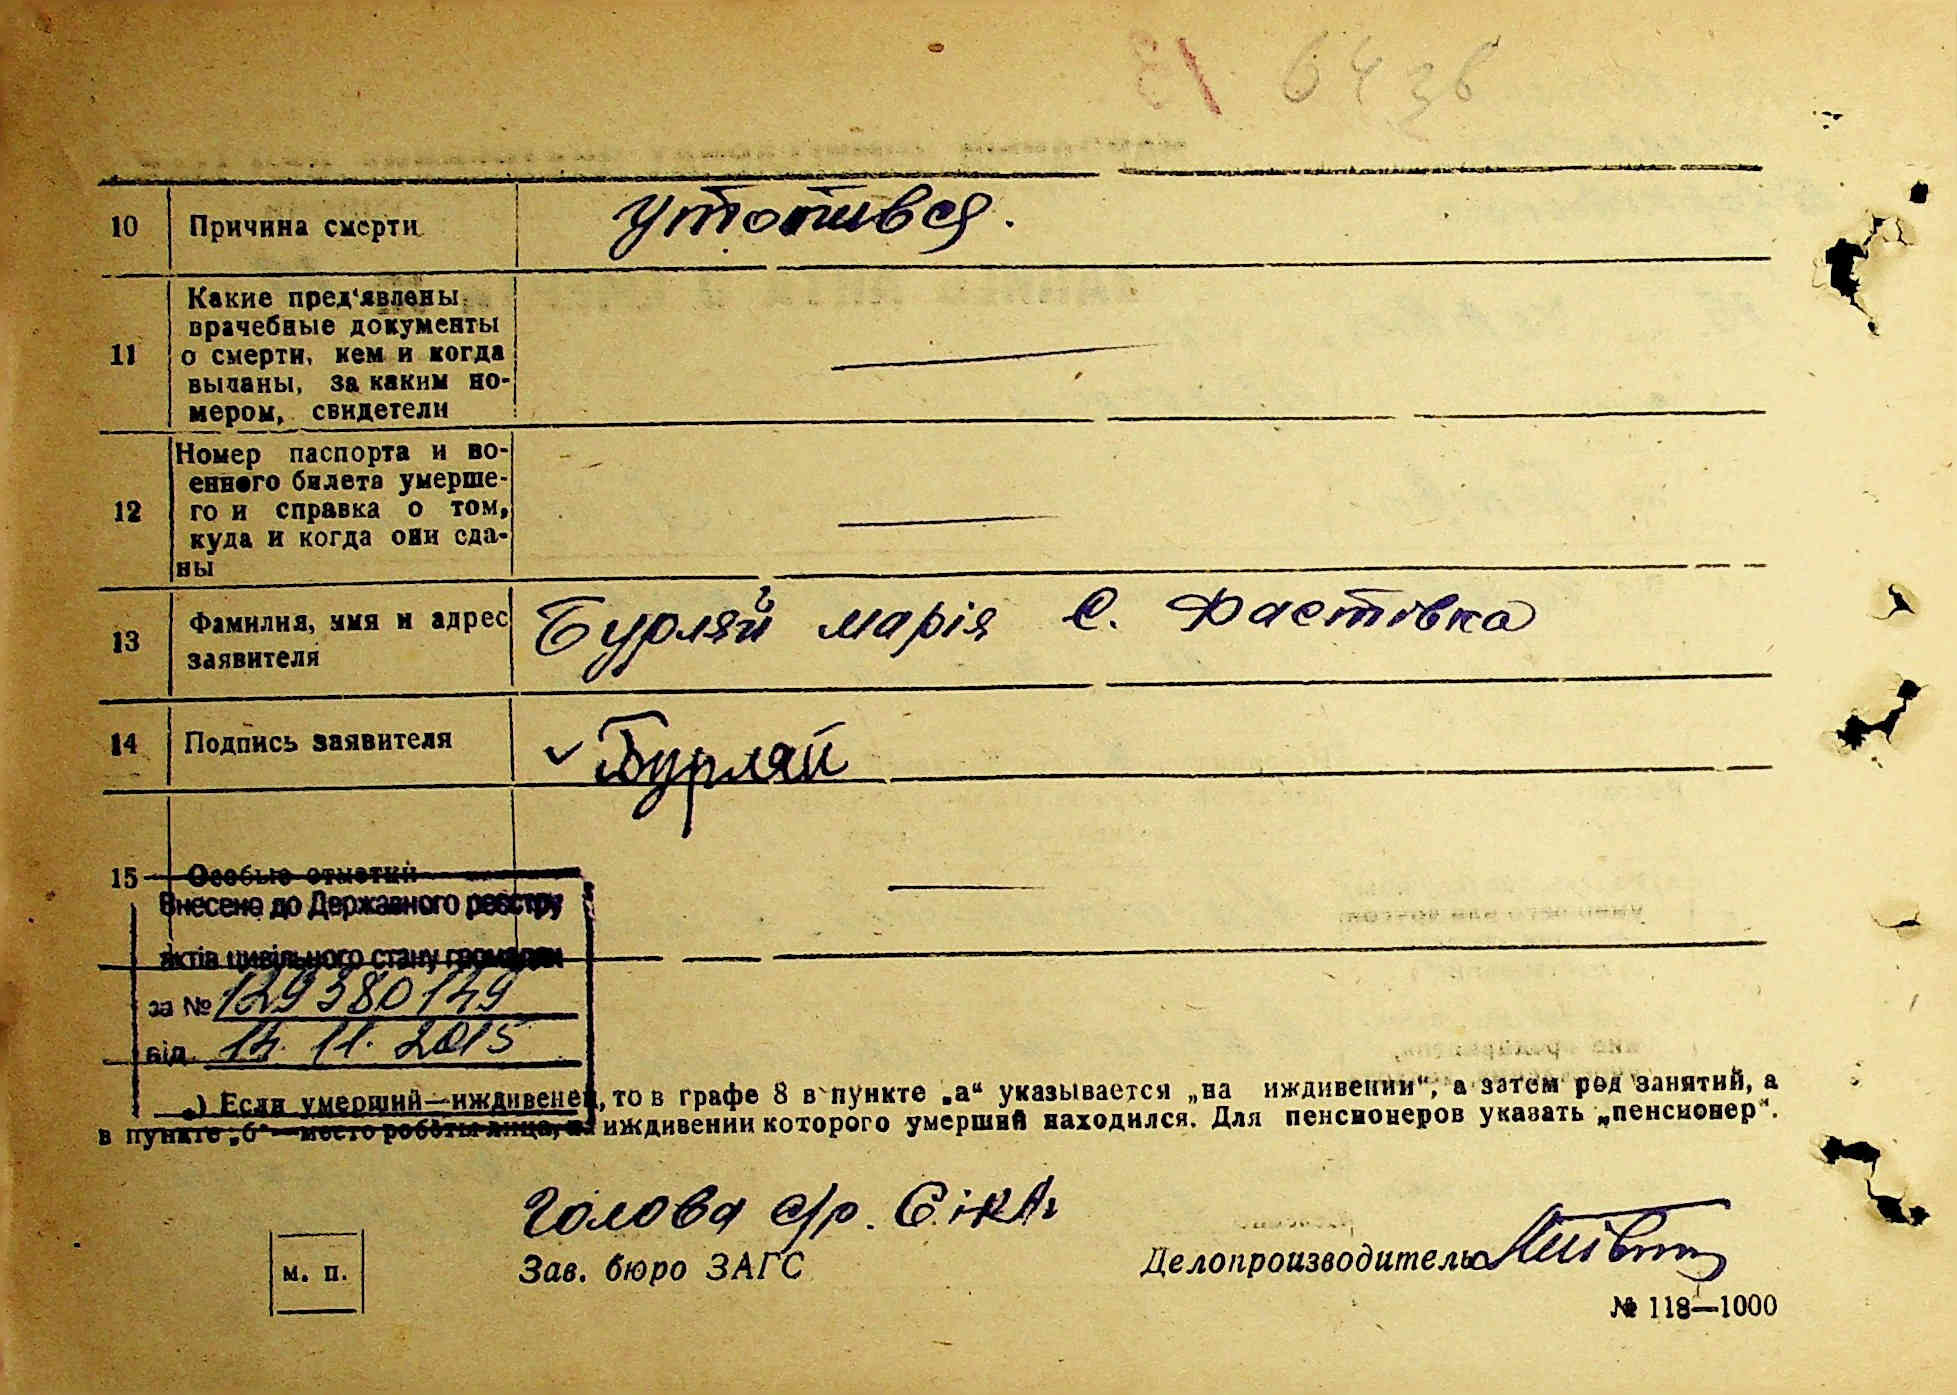 6436
10 Причина смерти утопився.
11 Какие пред'явлены
врачебные документы
о смерти, кем и когда
выданы, за каким но-
мером, свидетели
12 Номер паспорта и во-
енного билета умерше-
го и справка о том,
куда и когда они сда-
ны
13 Фамилия, имя и адрес
заявителя
Бурляй Марія С. Фастівка
14 Подпись заявителя Бурляй
15 Особые отметки
Внесено до Державного реєстру
актів цивільного стану громадян
за № 129380149
від 14.11.2015
*) Если умерший—иждивенец, то в графе 8 в пункте „а“ указывается „на иждивении“, а затем род занятий, а
в пункте „б“—место работы лица, на иждивении которого умерший находился. Для пенсионеров указать „пенсионер“.
Голова с/р.
м. п.
Зав. бюро ЗАГС
Делопроизводитель
№ 118—1000